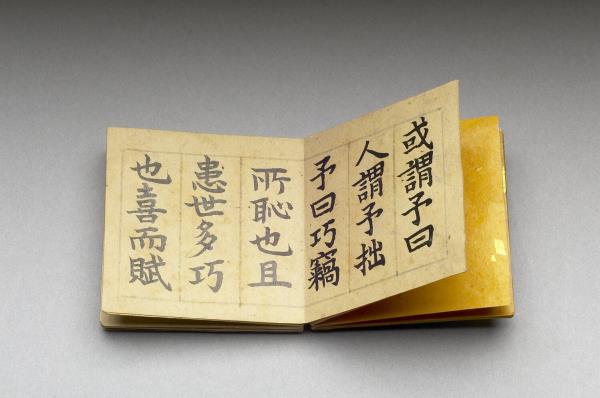 或謂予曰
人謂予拙
予曰巧竊
所恥也且
患世多巧
也喜而賦